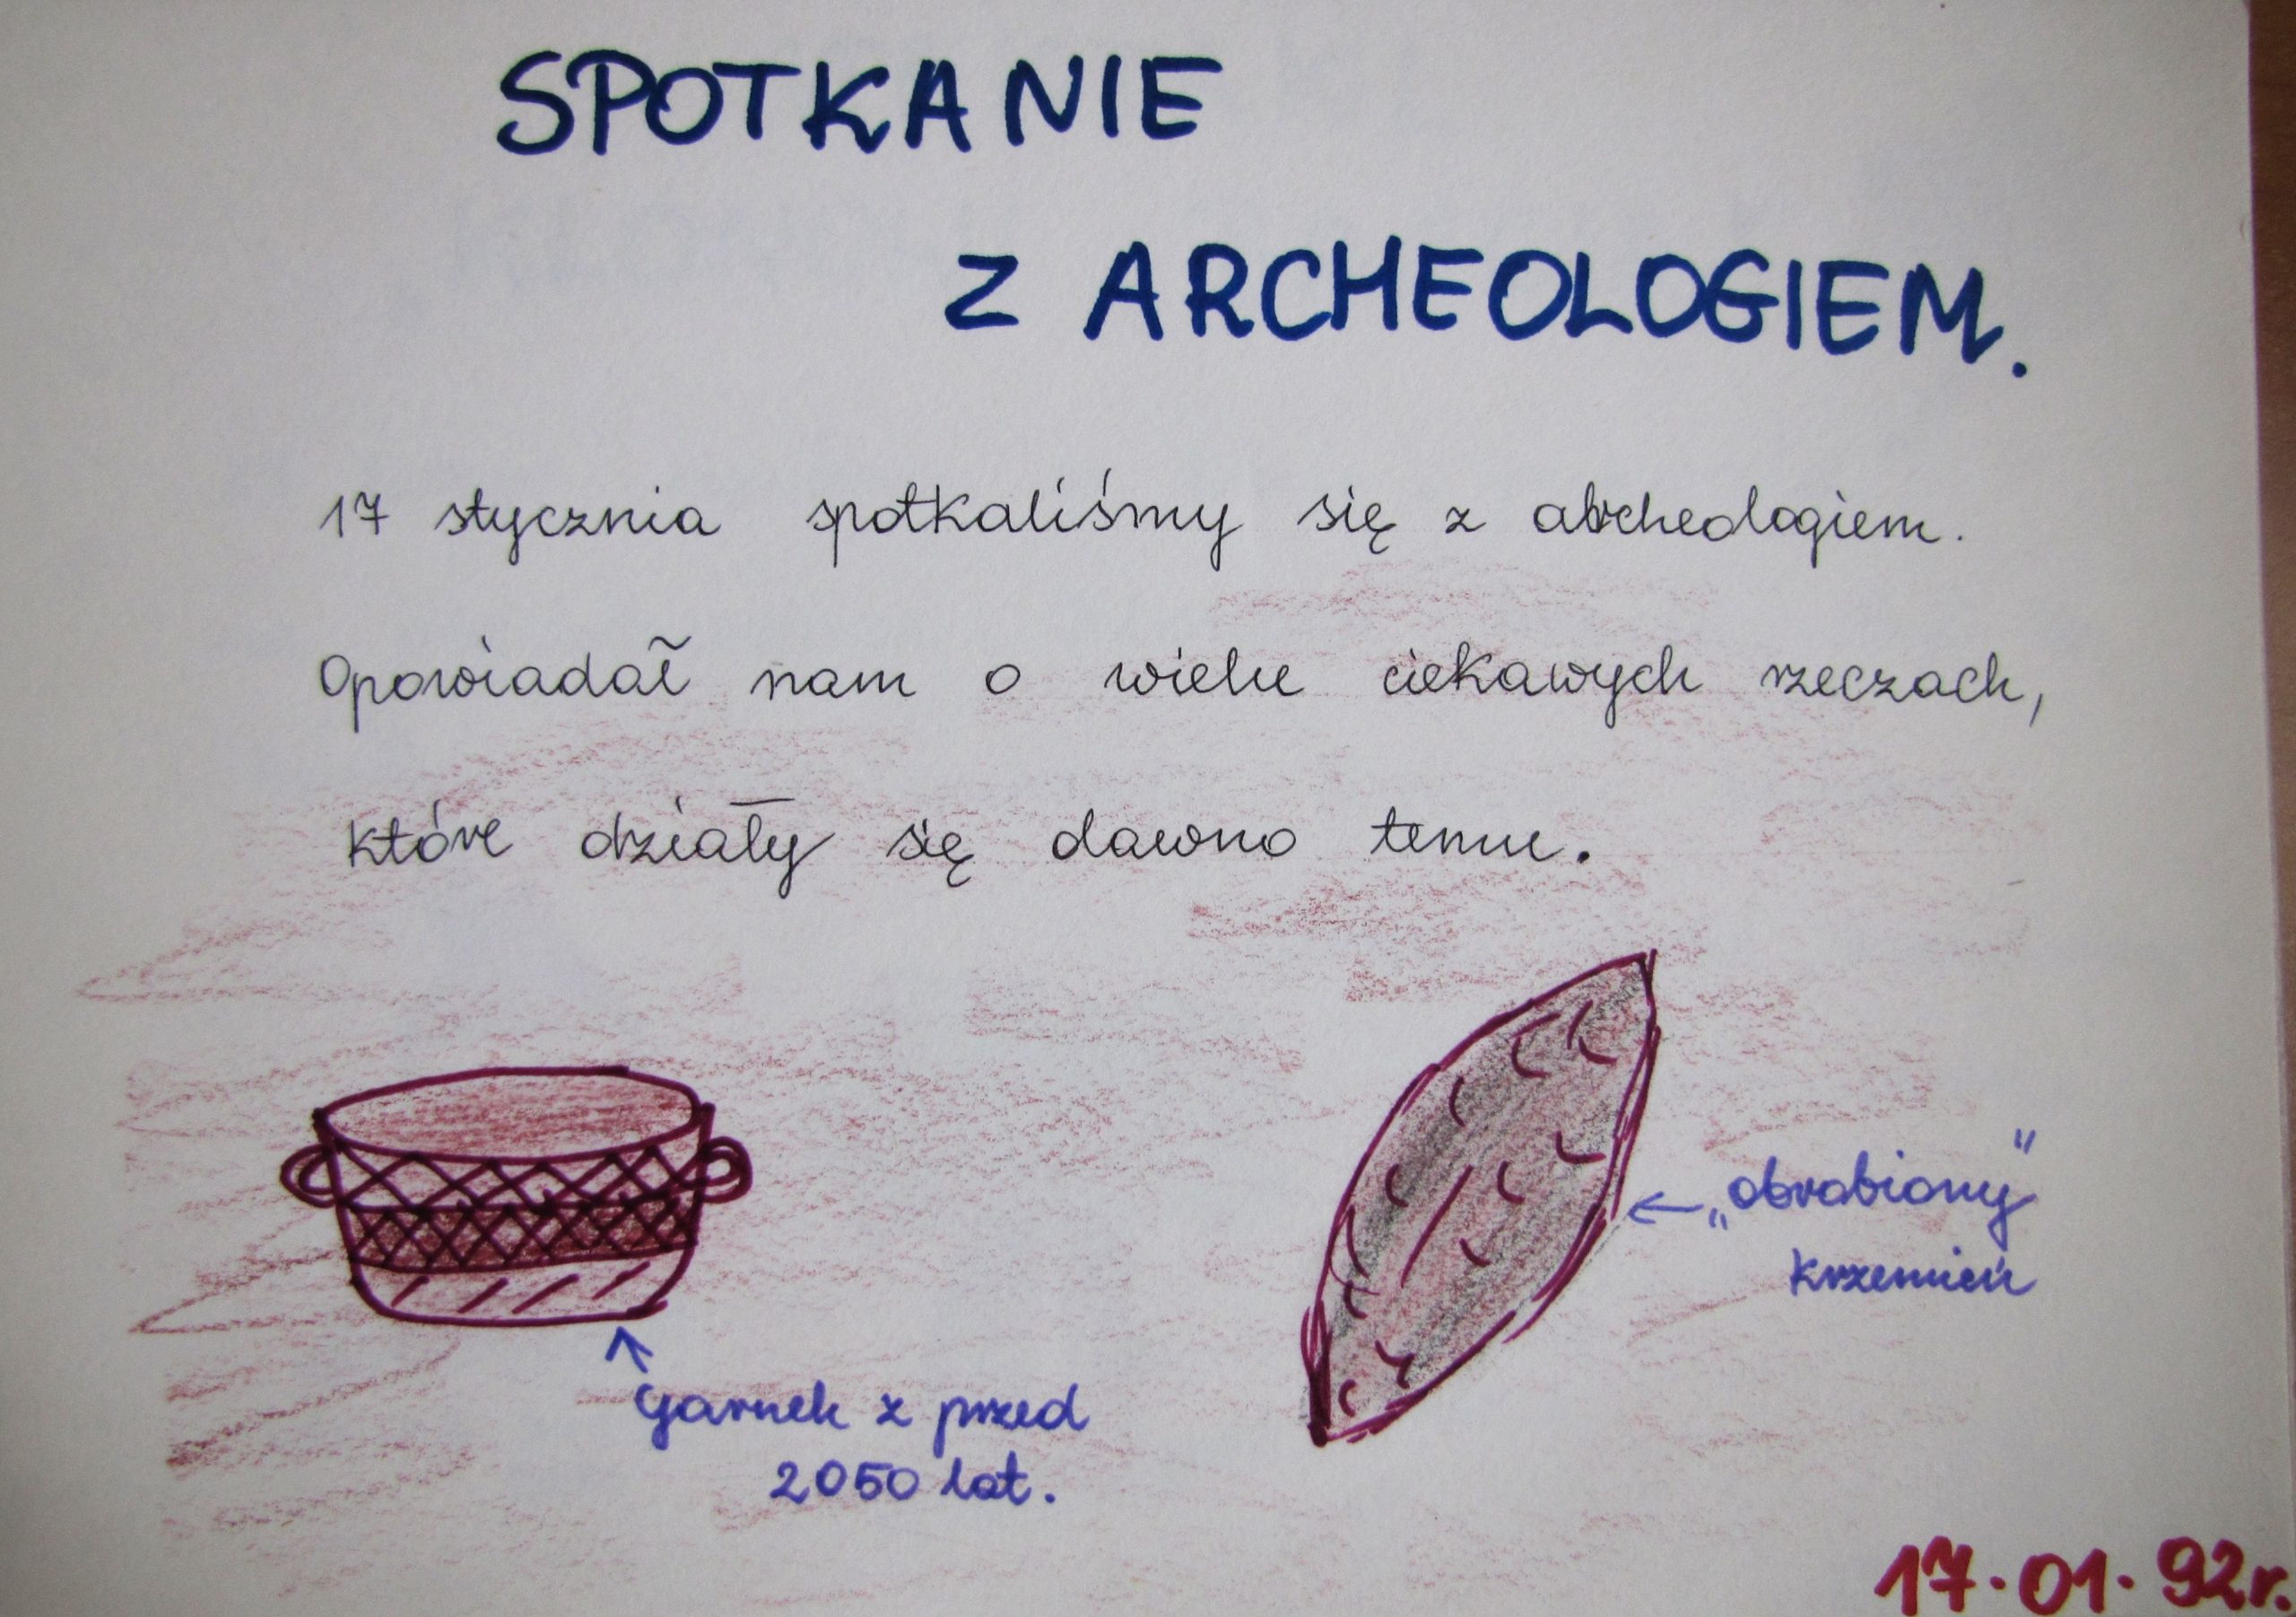 SPOTKANIE
Z ARCHEOLOGIEM.
17 stycznia spotkaliśmy się z archeologiem.
Opowiadał nam o wielu ciekawych rzeczach,
które działy się dawno temu.
"obrabiony"
krzemień
Garnek z przed
2050 lat.
17.01.92r.